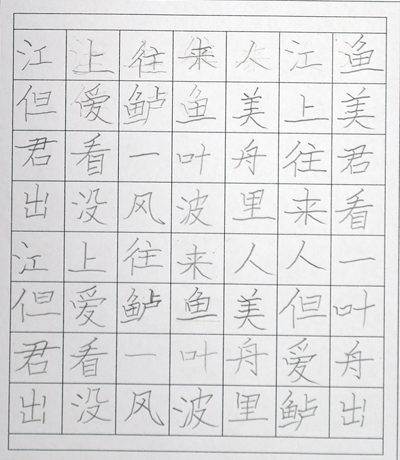 江上往来人江渔
但爱鲈鱼美上美
君看一叶舟往君
出没风波里来看
江上往来人人一
但爱鲈鱼美但叶
君看一叶舟爱舟
出没风波里鲈出